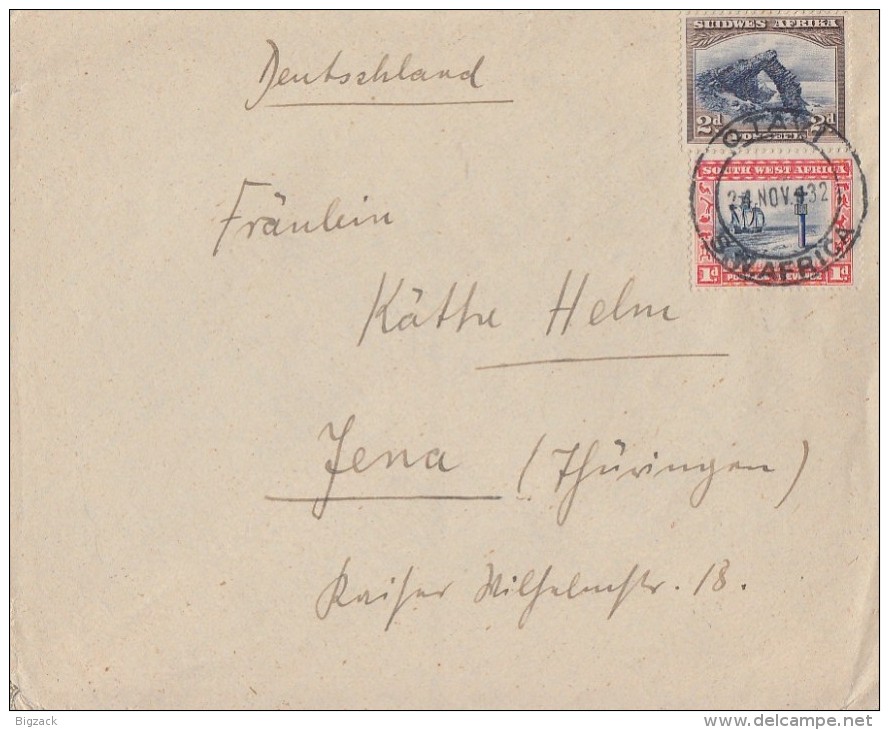 SUIDWES AFRIKA
2d 2d
POSGELD
OTAVI
SOUTH WEST AFRICA
NOV. 32
S.W. AFRICA
1d 1d
Deutschland
Fräulein
Käthe Helm
Jena (Thüringen)
Kaiser Wilhelmstr. 18.
Bigzack
delcampe.net